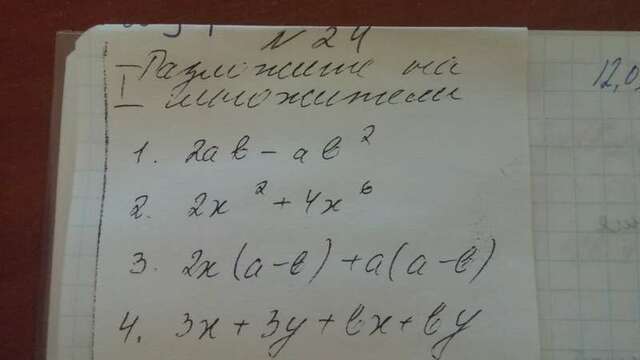 N 24
I Разложите на
множители
1. 2ab - ab²
2. 2x² + 4x⁶
3. 2x(a-b) + a(a-b)
4. 3x + 3y + bx + by
12,0